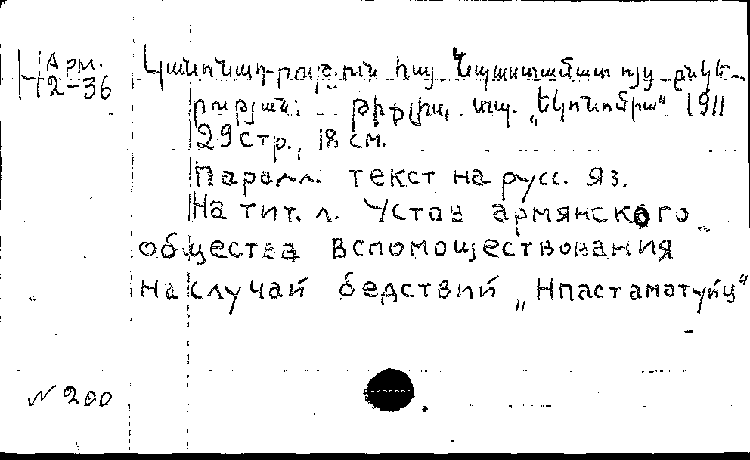 Арм.
2-36
Կանոնադրութիւն հայ նպաստամատոյց ընկե-
րութեան. Թիֆլիս. տպ. „Էկոնոմիա“ 1911
29 стр., 18 см.
Паралл. текст на русс. яз.
На тит. л. Устав армянского
общества вспомоществования
на случай бедствий „Нпастаматуйц“
N 200